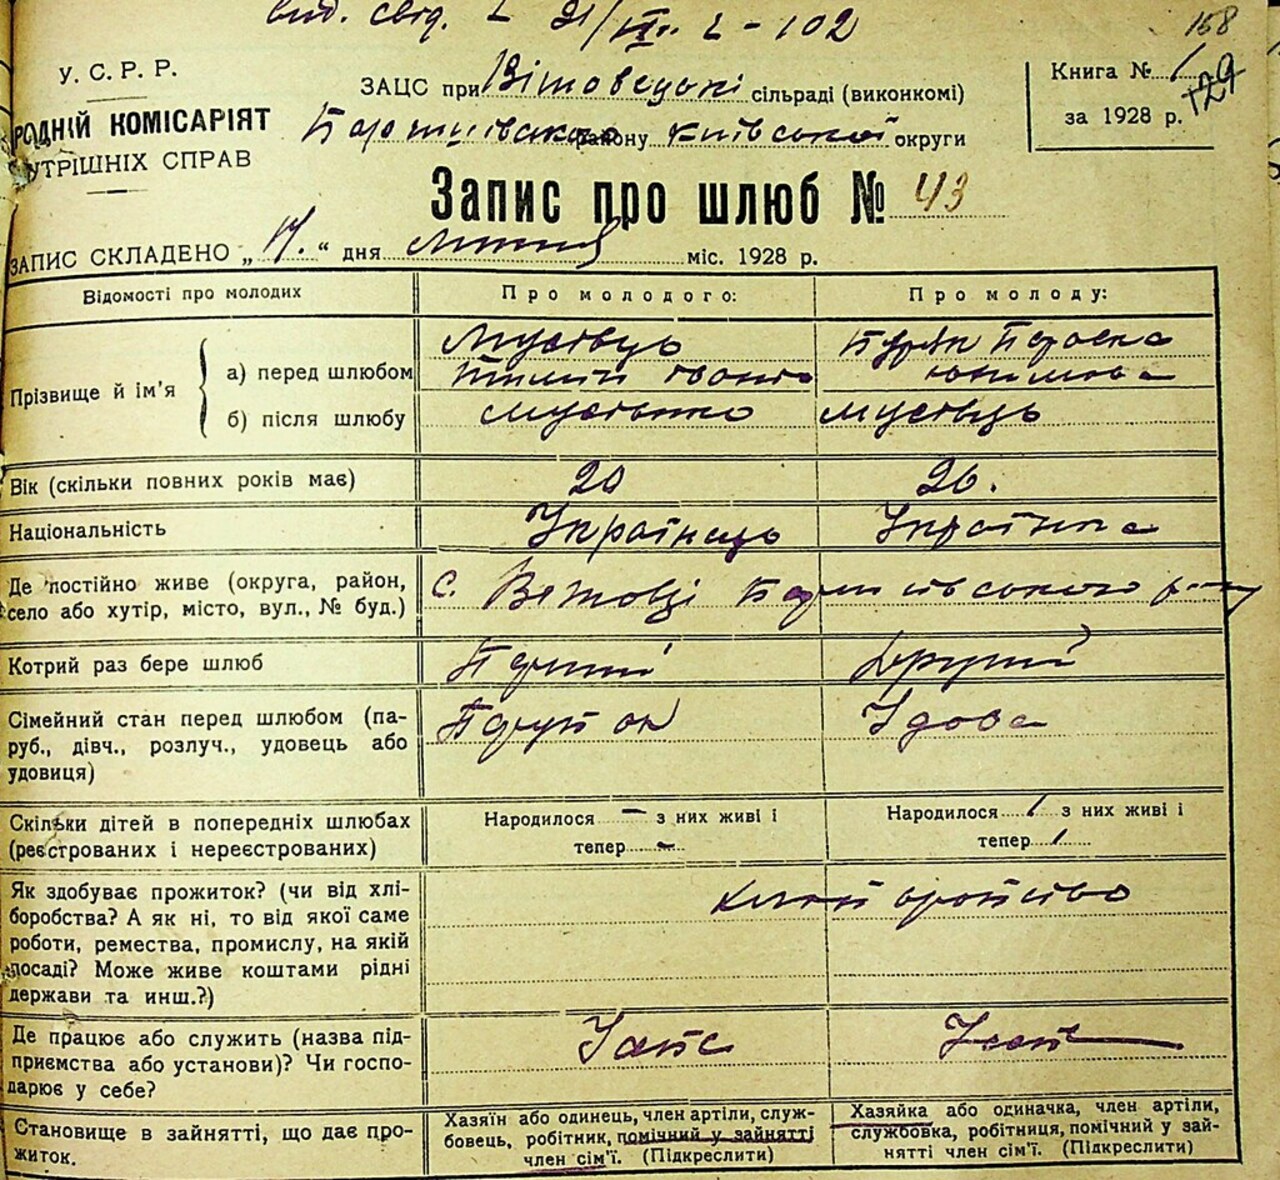 вид. свід. 21/ 2-102
168
У. С. Р. Р.
РОДНІЙ КОМІСАРІЯТ
УТРІШНІХ СПРАВ
ЗАЦС при Вітовецькі сільраді (виконкомі)
району Київської округи
Книга № 1
129
за 1928 р.
Запис про шлюб № 43
ЗАПИС СКЛАДЕНО „ “ дня міс. 1928 р.
Відомості про молодих
Про молодого:
Про молоду:
Прізвище й ім'я
а) перед шлюбом
б) після шлюбу
Параска
Вік (скільки повних років має) 20 26.
Національність Українець Українка
Де постійно живе (округа, район,
село або хутір, місто, вул., № буд.)
с. Ветовці
Котрий раз бере шлюб Перший Другий
Сімейний стан перед шлюбом (па-
руб., дівч., розлуч., удовець або
удовиця)
Парубок Удова
Скільки дітей в попередніх шлюбах
(реєстрованих і нереєстрованих)
Народилося — з них живі і
тепер —
Народилося 1 з них живі і
тепер 1
Як здобуває прожиток? (чи від хлі-
боробства? А як ні, то від якої саме
роботи, ремества, промислу, на якій
посаді? Може живе коштами рідні
держави та инш.?)
Де працює або служить (назва під-
приємства або установи)? Чи госпо-
дарює у себе?
Становище в зайнятті, що дає про-
житок.
Хазяїн або одинець, член артіли, служ-
бовець, робітник, помічний у зайнятті
член сім'ї. (Підкреслити)
Хазяйка або одиначка, член артіли,
службовка, робітниця, помічний у зай-
нятті член сім'ї. (Підкреслити)